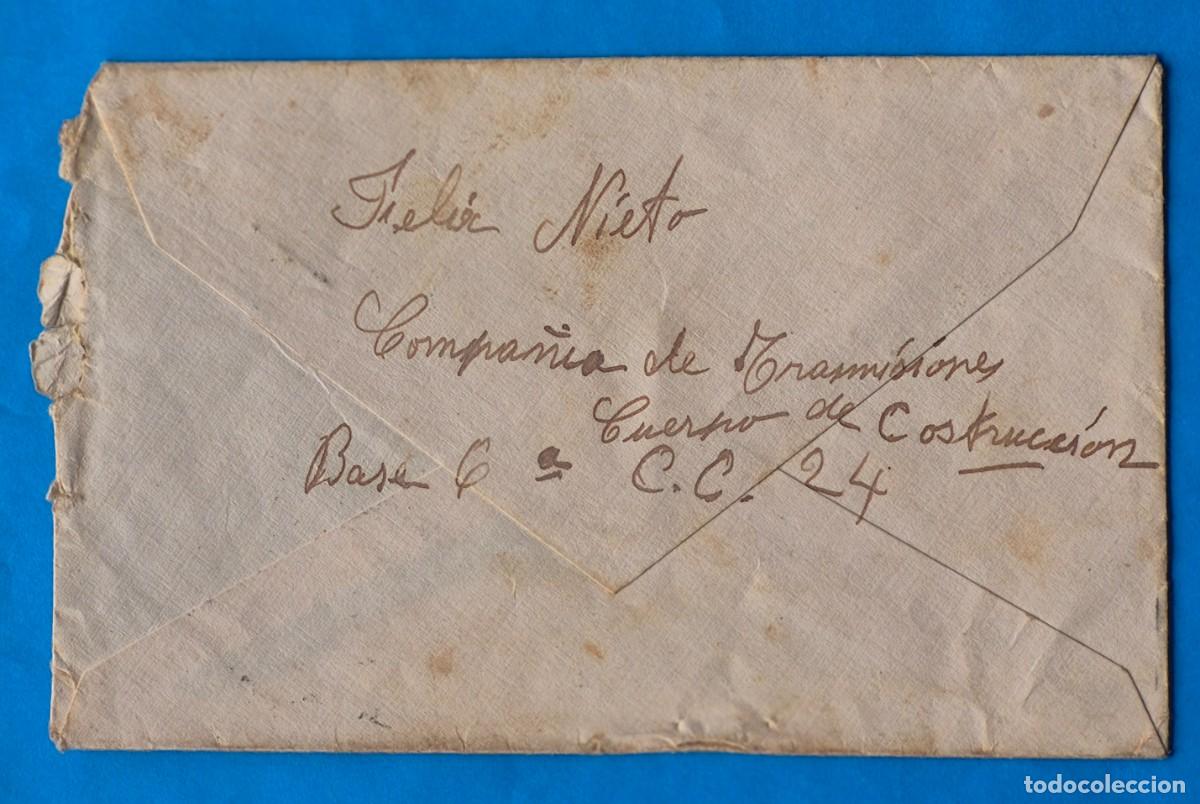 Felix Nieto
Compañia de Trasmisiones
Cuerpo de Costrucción
Base 6 a C.C. 24
todocoleccion